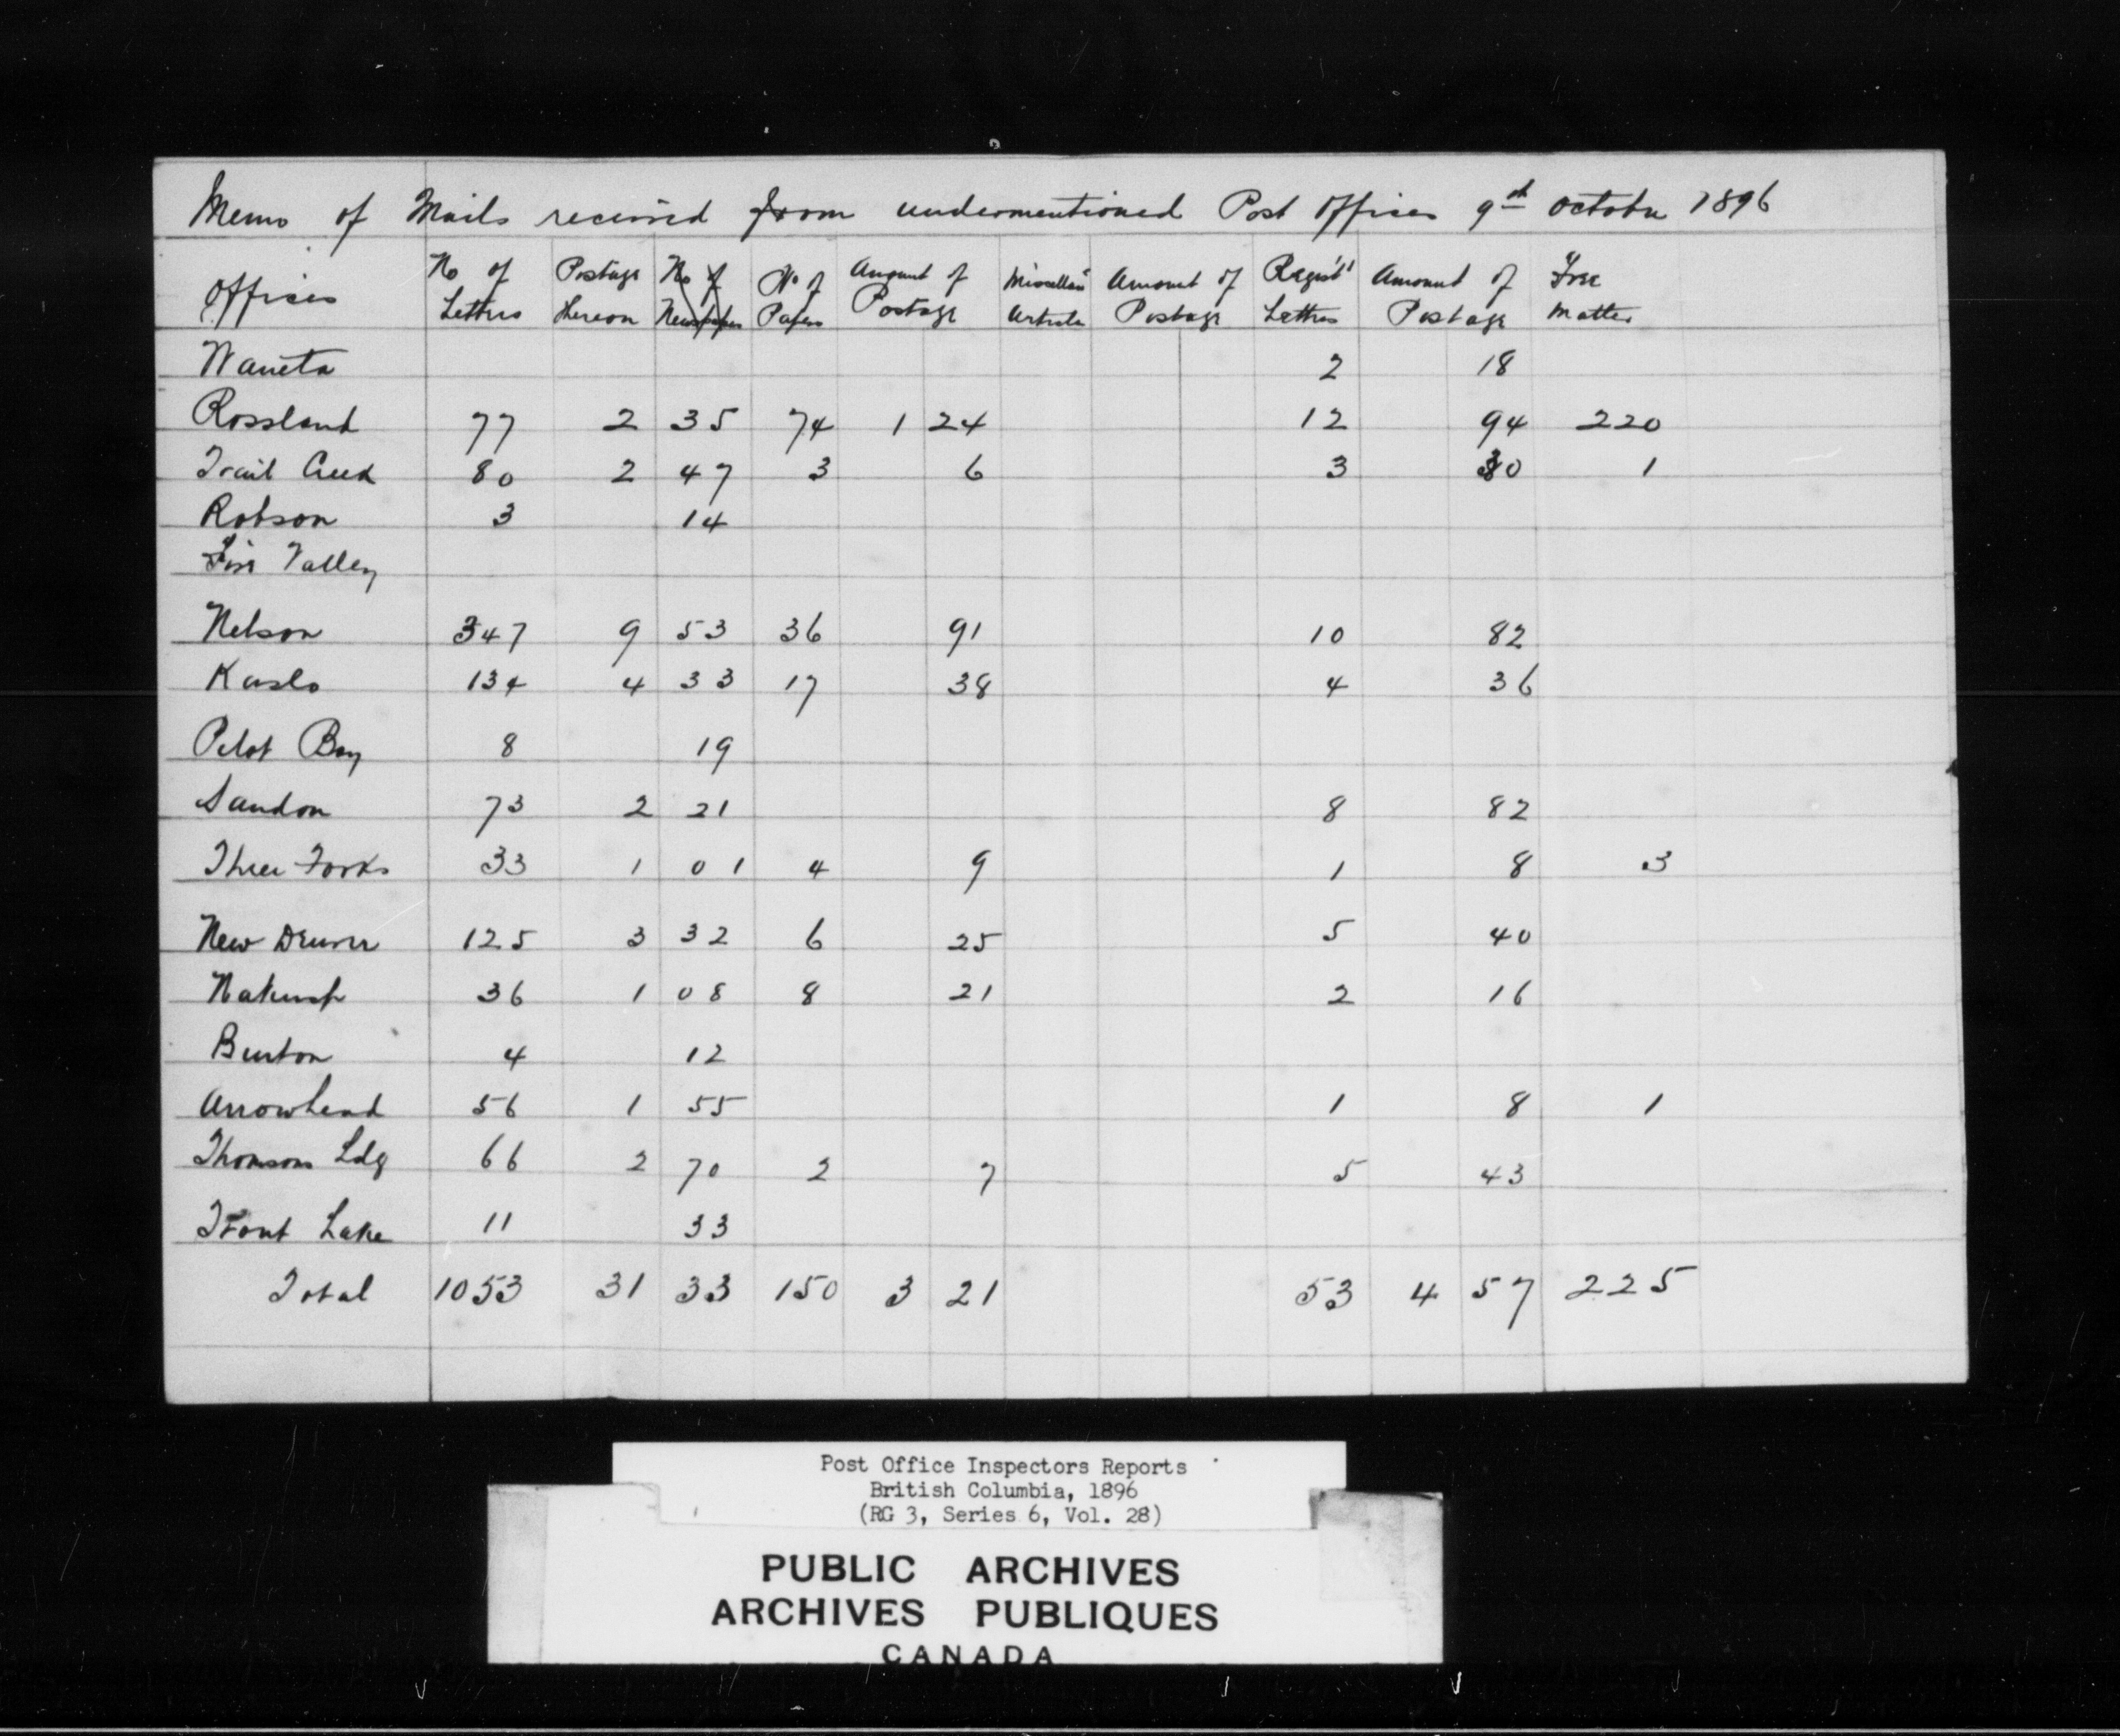 Memo of Mails received from undermentioned Post Offices 9th October 1896
Offices No of Letters Postage thereon No of Newspapers No of Papers Amount of Postage Miscellan's Article Amount of Postage Regist'd Letters Amount of Postage Free Matter
Waneta 2 18
Rossland 77 2 35 74 1 24 12 94 220
Trail Creek 80 2 47 3 6 3 30 1
Robson 3 14
Fire Valley
Nelson 347 9 53 36 91 10 82
Kaslo 134 4 33 17 38 4 36
Pilot Bay 8 19
Sandon 73 2 21 8 82
Three Forks 33 1 01 4 9 1 8 3
New Denver 125 3 32 6 25 5 40
Nakusp 36 1 08 8 21 2 16
Burton 4 12
Arrowhead 56 1 55 1 8 1
Thomsons Ldg 66 2 70 2 7 5 43
Trout Lake 11 33
Total 1053 31 33 150 3 21 53 4 57 225
Post Office Inspectors Reports
British Columbia, 1896
(RG 3, Series 6, Vol. 28)
PUBLIC ARCHIVES
ARCHIVES PUBLIQUES
CANADA